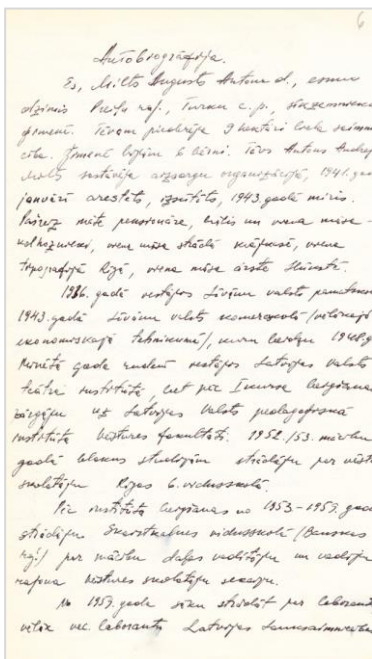 6
Autobiogrāfija.
Es, Milts Augusts Antona d., esmu
dzimis Preiļu raj., Turku c.p., sīkzemnieku
ģimenē. Tēvam piederēja 9 hektāri liela saimnie-
cība. Ģimenē bijām 6 bērni. Tēvs Antons Andreja
Milts sastāvēja aizsargu organizācijā, 1941. gada
janvārī arestēts, izsūtīts, 1943. gadā miris.
Pašreiz māte pensionāre, brālis un viena māsa -
kolhoznieki, viena māsa strādā veikalā, viena
tipogrāfijā Rīgā, viena māsa ārste Slimnīcā.
gadā iestājos Līvānu valsts pamatskolā
1943. gadā Līvānu valsts komercskolā /vēlākajā
ekonomiskajā tehnikumā/, kuru beidzu 1948. g.
Minētā gada rudenī iestājos Latvijas Valsts
teātra institūtā, bet pēc I kursa beigšanas
pārgāju uz Latvijas Valsts pedagoģiskā
institūta Vēstures fakultāti. 1952./53. mācību
gadā blakus studijām strādāju par vēst.
skolotāju Rīgas 6. vidusskolā.
Pēc institūta beigšanas no 1953 - 1957. gadam
strādāju Skaistkalnes vidusskolā /Bauskas
raj./ par mācību daļas vadītāju un vadīju
rajona vēstures skolotāju sekciju.
No 1957. gada sāku strādāt par laborantu
vēlāk vec. laborantu Latvijas Lauksaimniecības